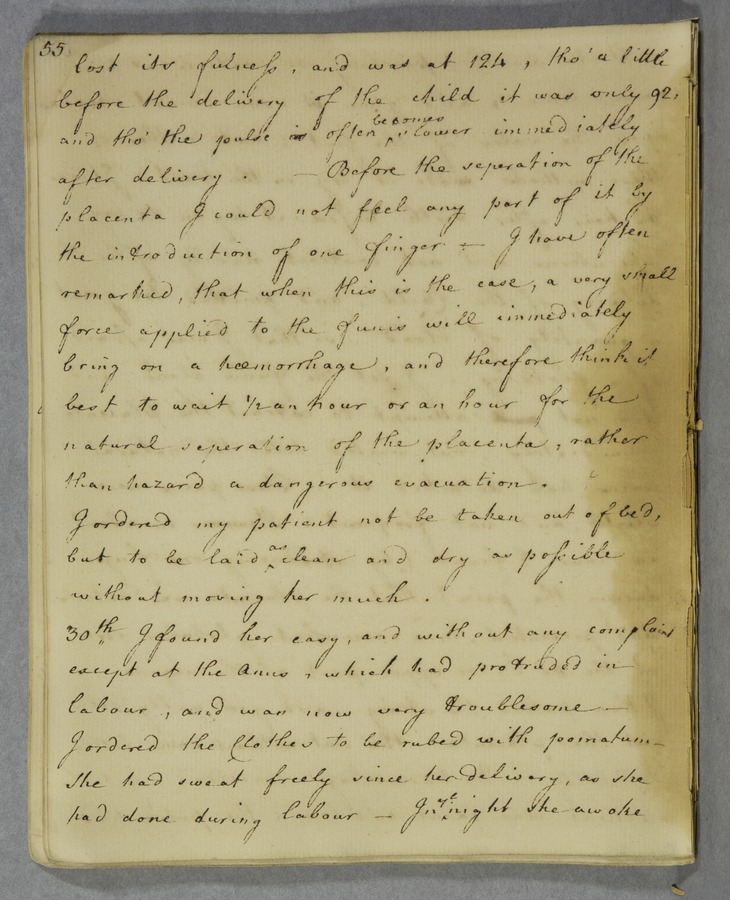 55
lost its fulness, and was at 124, tho' a little
before the delivery of the child it was only 92,
and tho' the pulse is often becomes slower immediately
after delivery. — Before the seperation of the
placenta I could not feel any part of it by
the introduction of one finger — I have often
remarked, that when this is the case, a very small
force applied to the funis will immediately
bring on a hœmorrhage, and therefore think it
best to wait 1/2 an hour or an hour for the
natural seperation of the placenta, rather
than hazard a dangerous evacuation.
I ordered my patient not be taken out of bed,
but to be laid as clean and dry as possible
without moving her much.
30th I found her easy, and without any complaint
except at the Anus, which had protruded in
labour, and was now very troublesome —
I ordered the Clothes to be rubed with pomatum —
She had sweat freely since her delivery, as she
had done during labour — In ye night she awoke